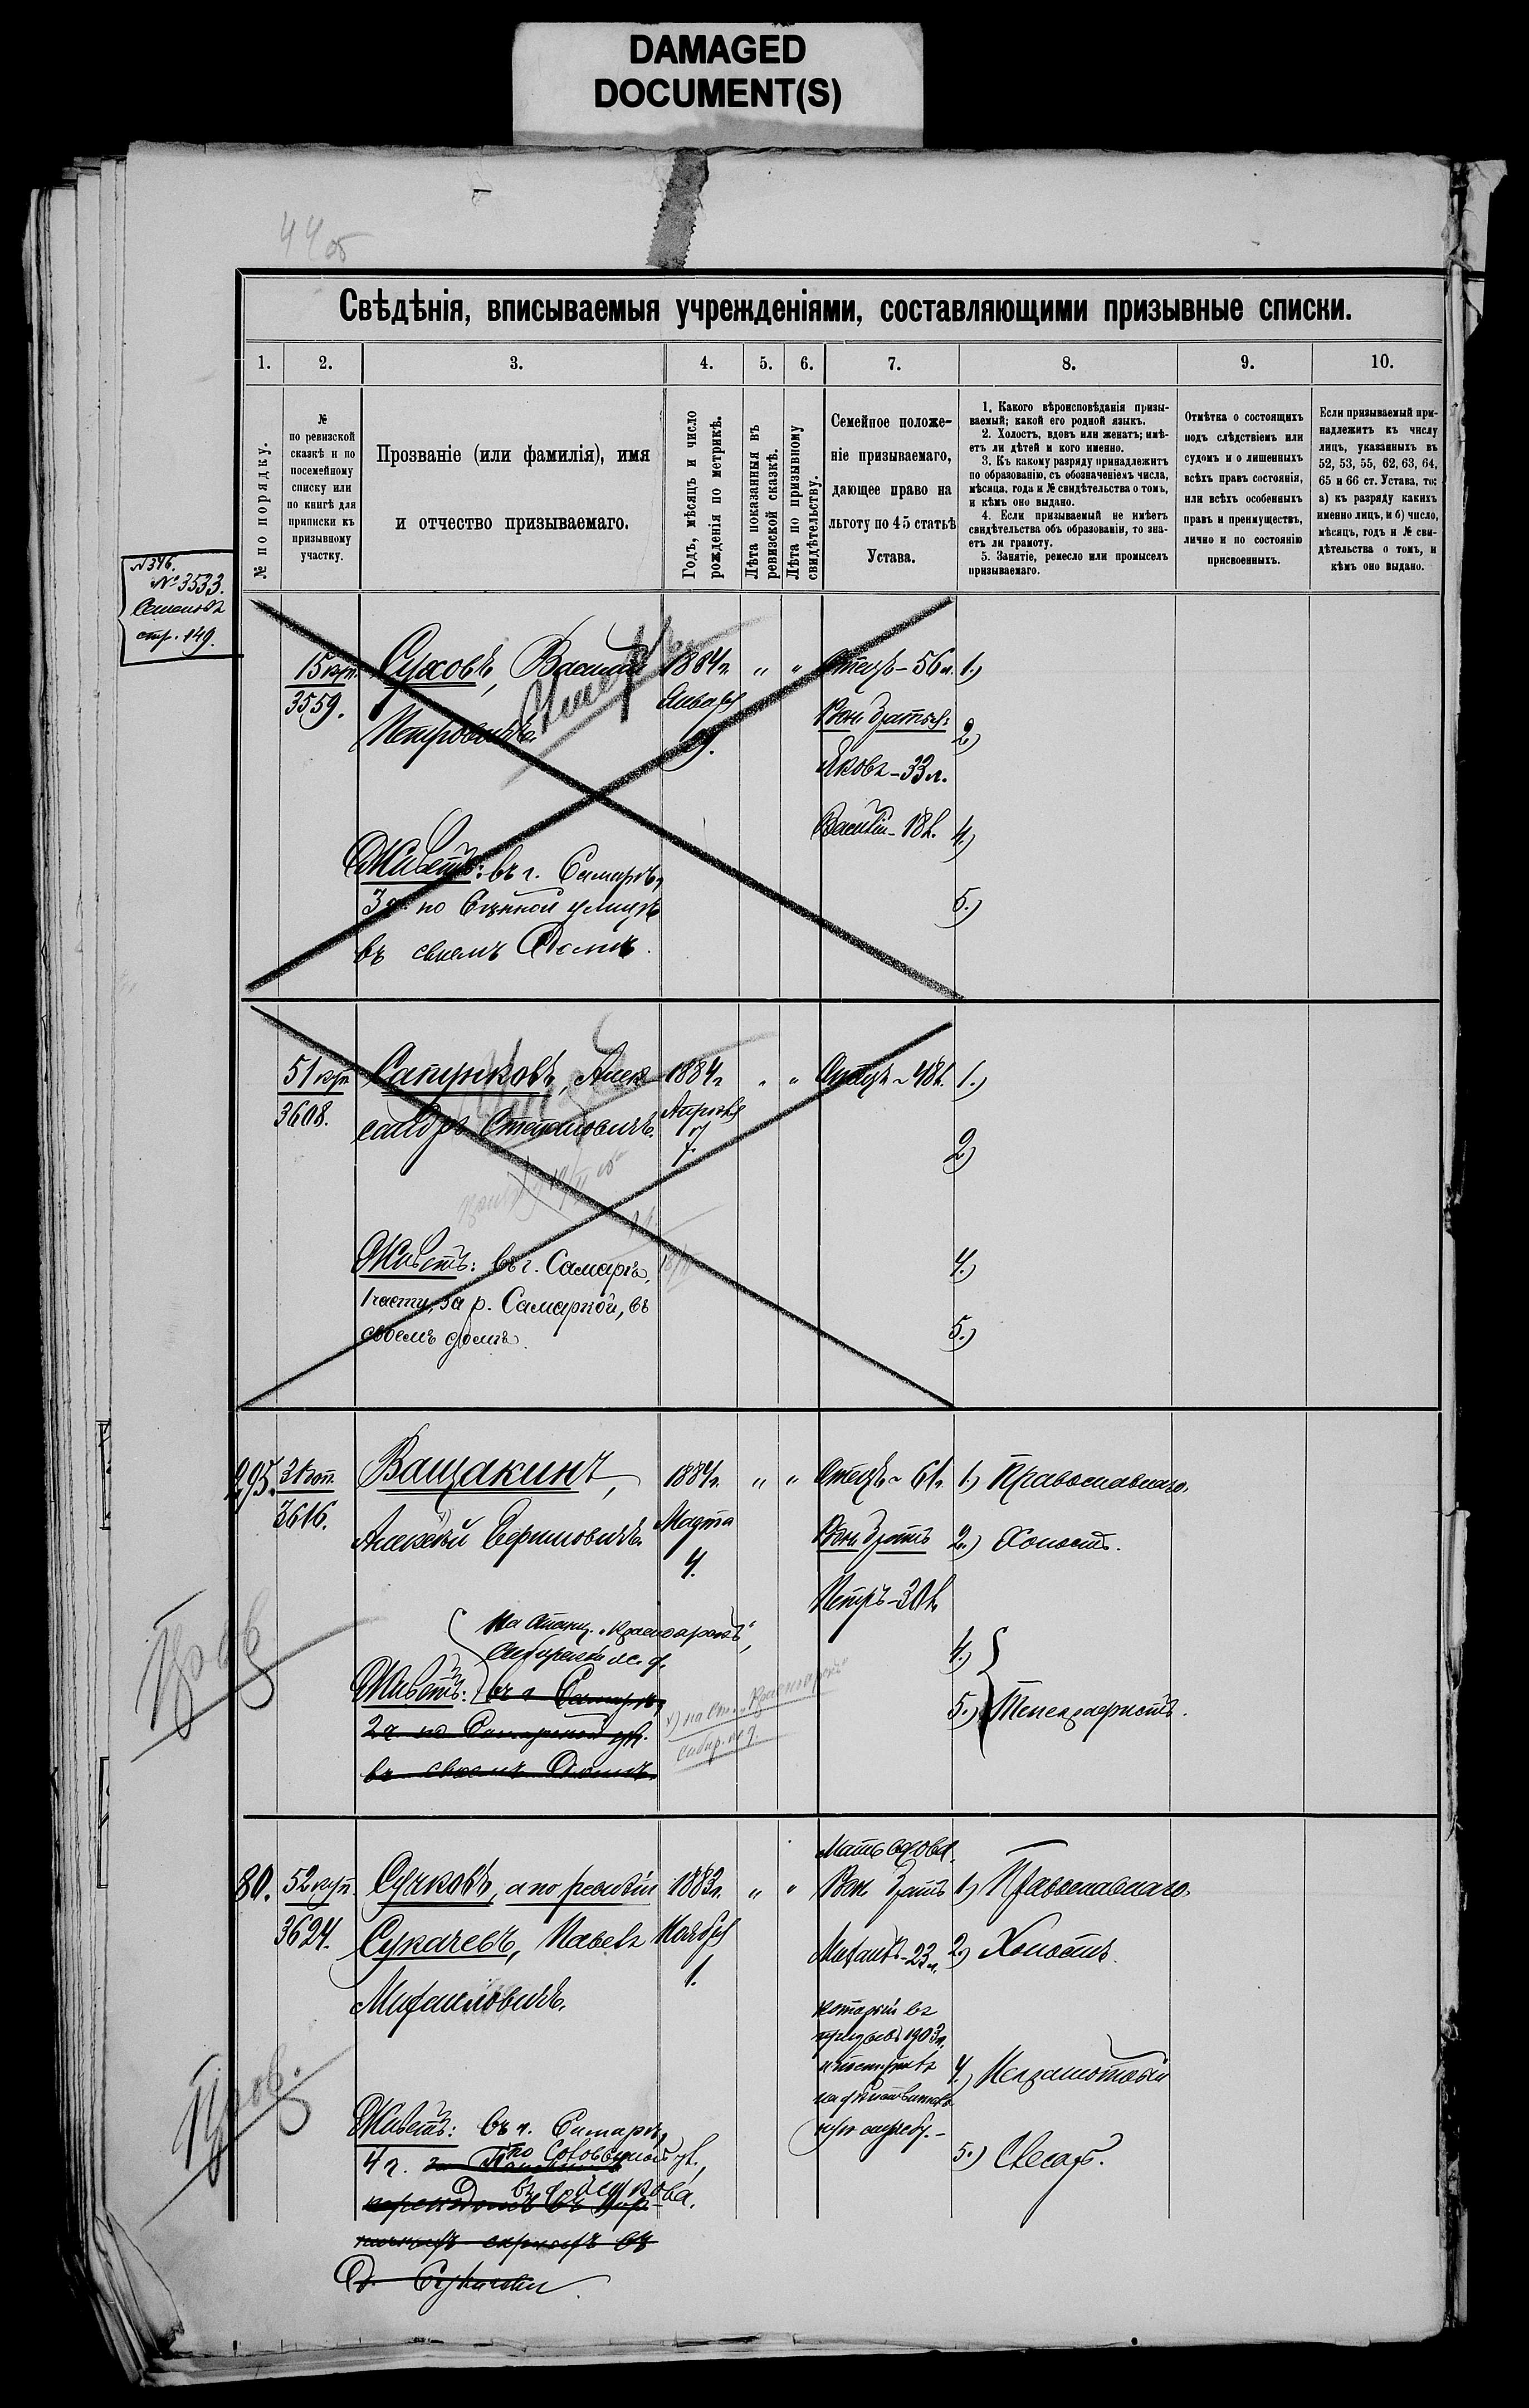 DAMAGED
DOCUMENT(S)
44 об
Свѣдѣнія, вписываемыя учрежденіями, составляющими призывные списки.
1.
2.
3.
4.
5.
6.
7.
8.
9.
10.
№ по порядку.
№
по ревизской
сказкѣ и по
посемейному
списку или
по книгѣ для
приписки къ
призывному
участку.
Прозваніе (или фамилія), имя
и отчество призываемаго.
Годъ, мѣсяцъ и число
рожденія по метрикѣ.
Лѣта показанныя въ
ревизской сказкѣ.
Лѣта по призывному
свидѣтельству.
Семейное положе-
ніе призываемаго,
дающее право на
льготу по 45 статьѣ
Устава.
1. Какого вѣроисповѣданія призы-
ваемый; какой его родной языкъ.
2. Холостъ, вдовъ или женатъ; имѣ-
етъ ли дѣтей и кого именно.
3. Къ какому разряду принадлежитъ
по образованію, съ обозначеніемъ числа,
мѣсяца, года и № свидѣтельства о томъ,
и кѣмъ оно выдано.
4. Если призываемый не имѣетъ
свидѣтельства объ образованіи, то зна-
етъ ли грамоту.
5. Занятіе, ремесло или промыселъ
призываемаго.
Отмѣтка о состоящихъ
подъ слѣдствіемъ или
судомъ и о лишенныхъ
всѣхъ правъ состоянія,
или всѣхъ особенныхъ
правъ и преимуществъ,
лично и по состоянію
присвоенныхъ.
Если призываемый при-
надлежитъ къ числу
лицъ, указанныхъ въ
52, 53, 55, 62, 63, 64,
65 и 66 ст. Устава, то:
а) къ разряду какихъ
именно лицъ, и б) число,
мѣсяцъ, годъ и № сви-
дѣтельства о томъ, и
кѣмъ оно выдано.
N 376.
№ 3533.
стр. 149.
15 куп.
3559.
Суховъ, Василій
Петровичъ.
1884 г.
Января
" "
Отецъ - 56 л.
Родн. братья:
Яковъ - 33 л.
Василій - 18 л.
1)
2)
4)
5.)
Живетъ: въ г. Самарѣ,
3 ч. по Сѣнной улицѣ
въ своемъ домѣ.
51 куп
3608.
Сапунковъ, Алек-
сандръ Степановичъ.
1884 г.
Апрѣля
7.
" "
Отецъ - 48 л.
1.)
2)
4.)
5.)
Живетъ: въ г. Самарѣ,
1 части, за р. Самаркой, въ
своемъ домѣ.
295.
3616.
Ващакинъ,
Алексѣй
1884 г.
Марта
4.
" "
Отецъ - 61 л.
Родн. братъ
Петръ - 30 л.
1) Православнаго.
2.) Холостъ.
4.)
5.) Телеграфистъ.
На станц. "Красноярскъ",
Сибирской ж. д.
Живетъ: въ г. Самарѣ,
2 ч. по Самарской ул.
въ своемъ домѣ.
х) на ст. "Красноярскъ"
Сибир. ж. д.
Пров
80.
52 куп.
3624.
Сучковъ, а по ревизіи
Сукачевъ, Павелъ
Михаиловичъ.
1883 г.
Ноября
1.
" "
Мать вдова.
Родн. братъ
Михаилъ - 23 л.
который въ
призывъ 1903 г.
и поступилъ
на дѣйствительн.
службу. -
1) Православнаго.
2.) Холостъ.
4.) Неграмотный
5.) Слесарь.
Живетъ: въ г. Самарѣ,
4 ч. по Соловьиной ул.,
Пров.